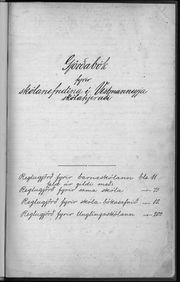 Gjörðabók
fyrir
skólanefndina í Vestmannaeyja
skólahjeraði
Reglugjörð fyrir barnaskólann bls. 11
Reglugjörð fyrir sama skóla — 71
Reglugjörð fyrir skóla-bókasafnið — 12.
Reglugjörð fyrir Unglingaskólann —